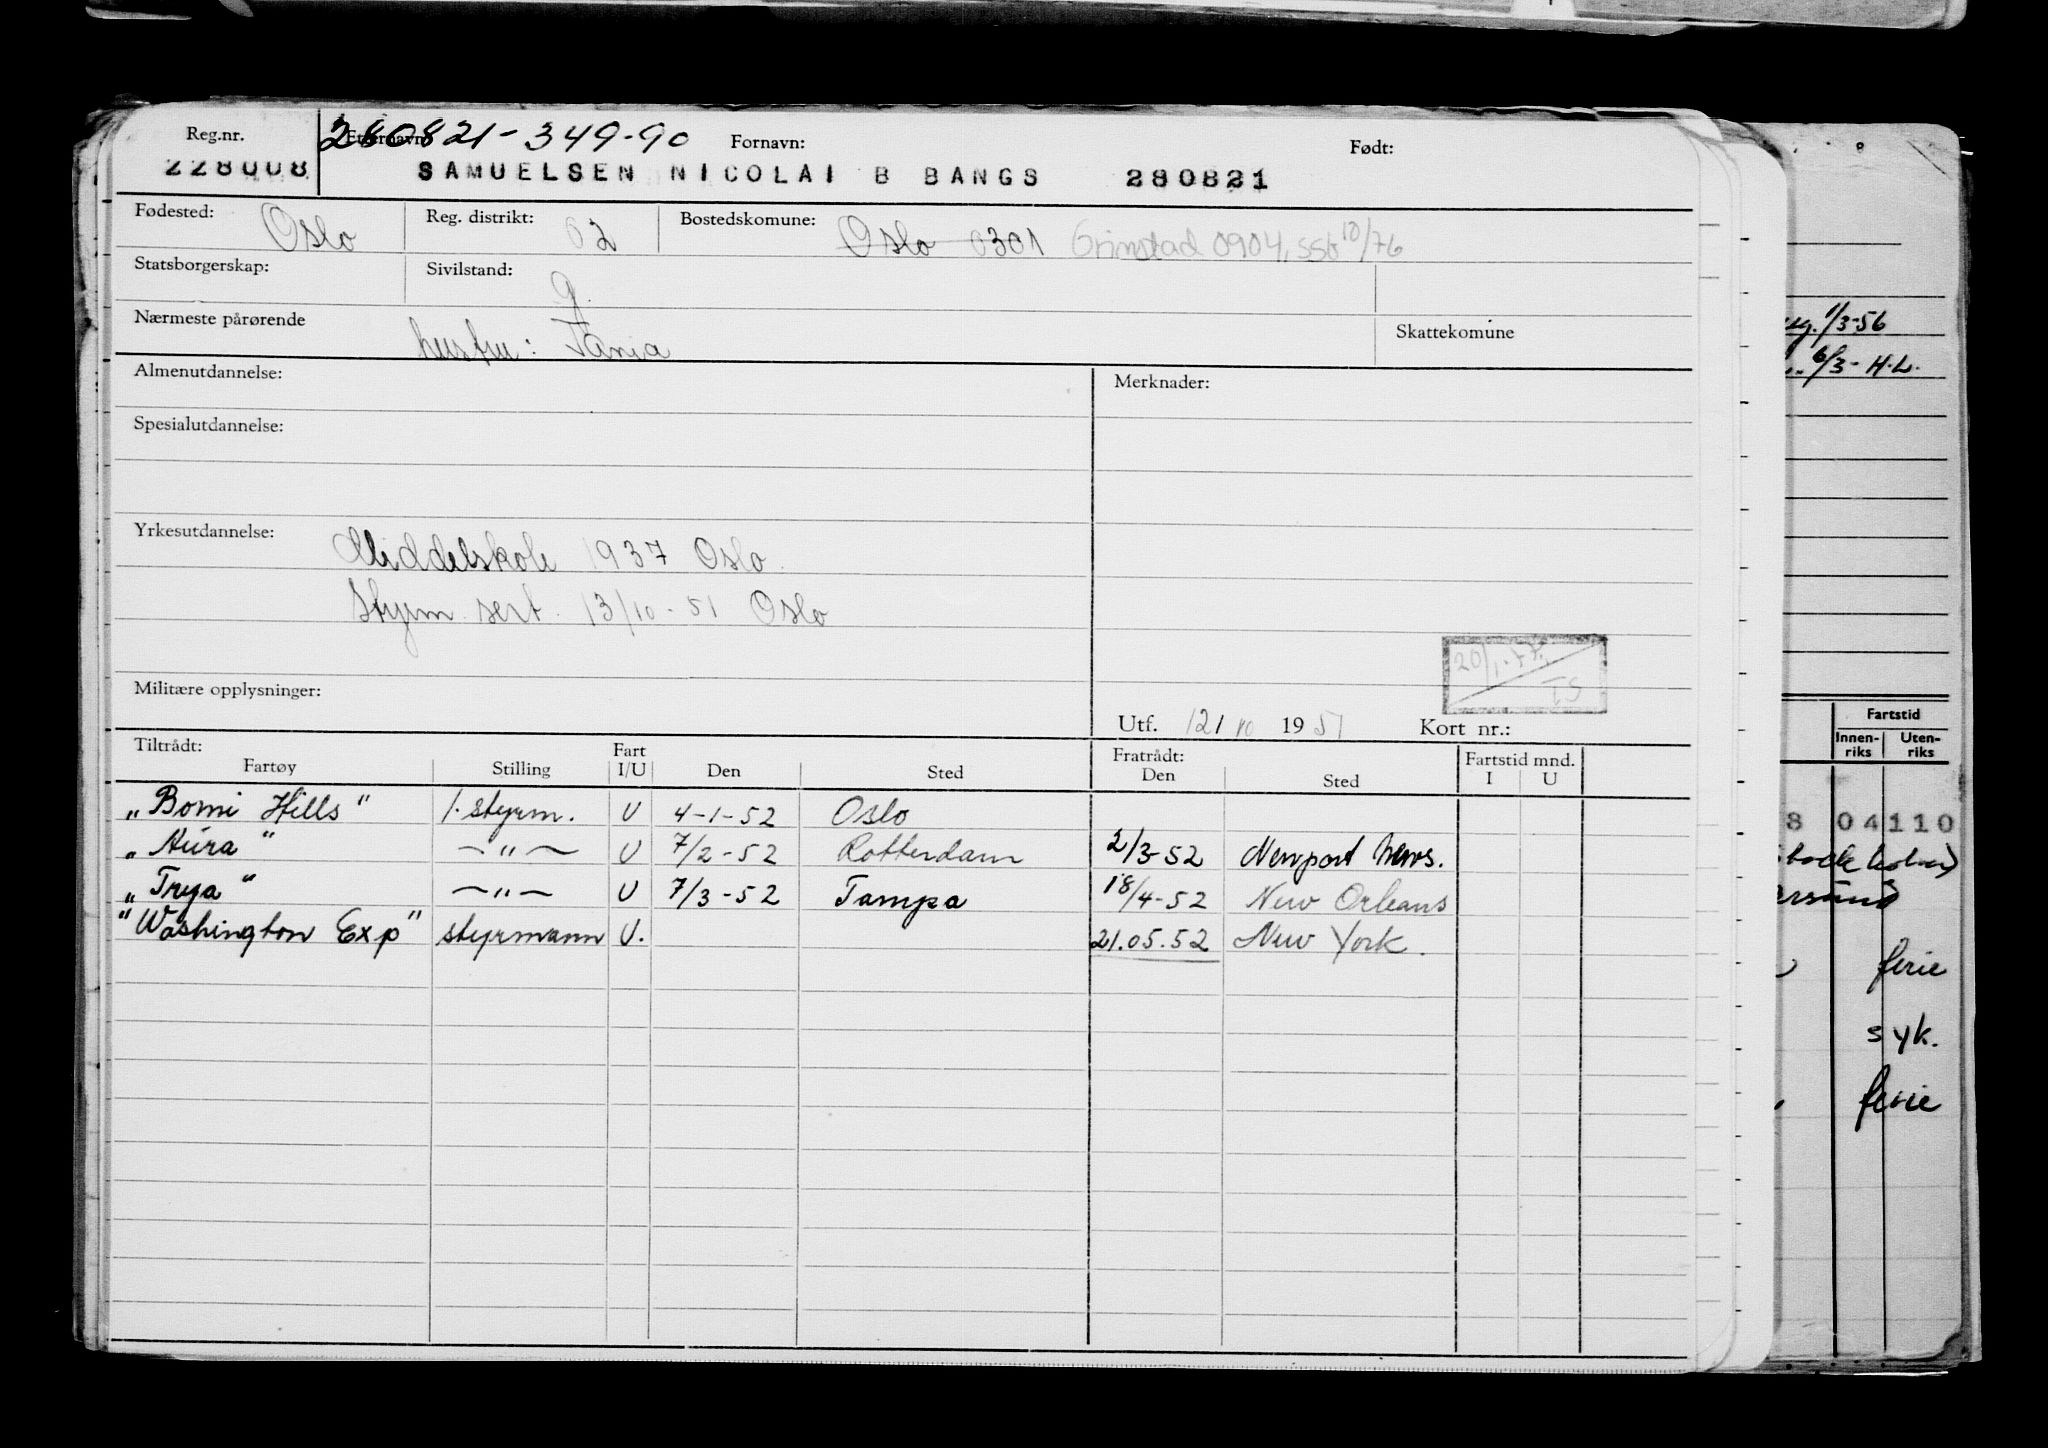 Reg.nr. Etternavn: 280821-349-90 Fornavn: Født:
228008 SAMUELSEN NICOLAI B BANGS 280821
Fødested: Oslo Reg. distrikt: 02 Bostedskomune: Oslo 0301 Grimstad 0904, SSB 10/76
Statsborgerskap: Sivilstand: g.
Nærmeste pårørende hustru: Tania Skattekomune
Almenutdannelse: Merknader:
Spesialutdannelse:
Yrkesutdannelse: Middelskole 1937 Oslo
Styrm. sert. 13/10-51 Oslo
20/1-77 TS
Militære opplysninger:
Utf. 12/10 1951 Kort nr.:
Tiltrådt: Fratrådt:
Fartøy Stilling Fart I/U Den Sted Den Sted Fartstid mnd. I U
"Bomi Hills" 1. styrm. U 4-1-52 Oslo
"Aura" —"— U 7/2-52 Rotterdam 2/3-52 Newport News.
"Trya" —"— U 7/3-52 Tampa 18/4-52 New Orleans
"Washington Exp" styrmann U. 21.05.52 New York.
1/3-56
6/3- H.L.
Fartstid
Innen-riks Uten-riks
8 04110
ferie
syk.
ferie